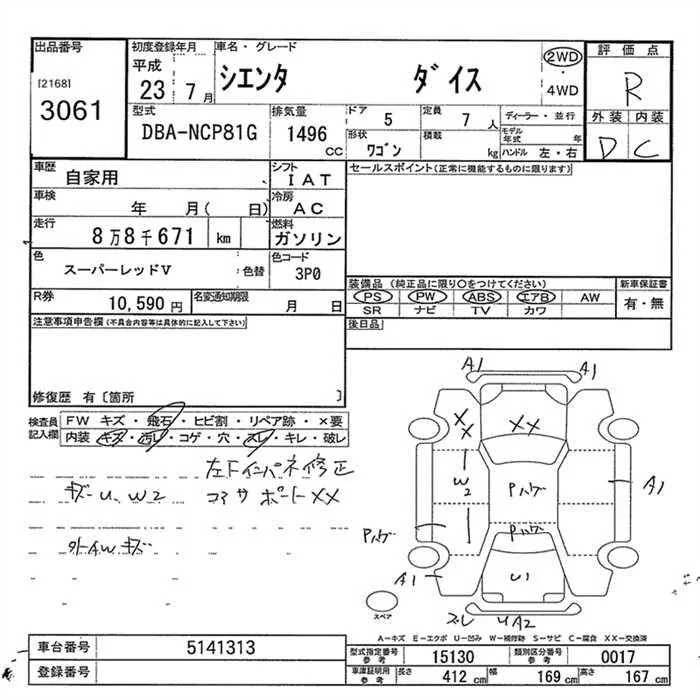 出品番号
[2168]
3061
初度登録年月
平成
23 7月
車名・グレード
シエンタ ダイス
2WD
・
4WD
評価点
R
外装 内装
D C
型式
DBA-NCP81G
排気量
1496 CC
ドア 5
定員 7人
形状 ワゴン
積載 kg
ディーラー・並行
モデル年式 年
ハンドル 左・右
車歴
自家用
シフト
IAT
車検
年 月( 日)
冷房
AC
走行
8万8千671 km
燃料
ガソリン
色
スーパーレッドV
:色替
色コード
3P0
R券 10,590円
名変通知期限 月 日
セールスポイント(正常に機能するものに限ります)
装備品(純正品に限り○をつけてください)
新車保証書
PS PW ABS エアB AW
有・無
SR ナビ TV カワ
後日品
注意事項申告欄(不具合内容等は具体的に記入して下さい)
修復歴 有〔箇所 〕
検査員
記入欄
FW キズ・飛石・ヒビ割・リペア跡・×要
内装・キズ・汚レ・コゲ・穴・スレ・キレ・破レ
左F インパネ修正
キズ U W2 コアサポートXX
外AWキズ
A1
A1
XX
XX
W2
Pハゲ
A1
Pハゲ
Pハゲ
A1
U1
スペア
ズレ UA2
A-キズ E-エクボ U-凹み W-補修跡 S-サビ C-腐食 XX-交換済
車台番号 5141313
登録番号
型式指定番号 参考 15130
類別区分番号 参考 0017
車庫証明用 参考 長さ 412 cm 幅 169 cm 高さ 167 cm